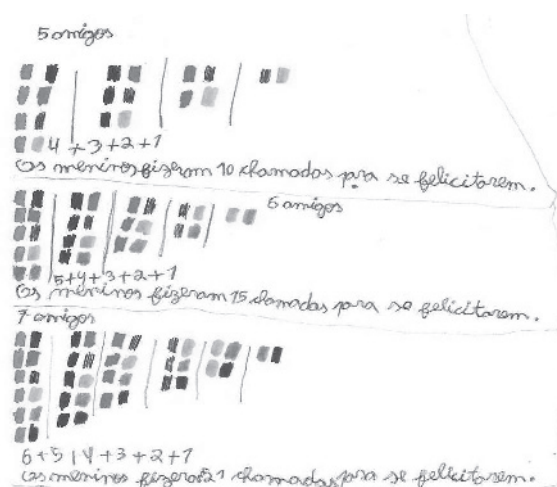 5 amigos
4 + 3 + 2 + 1
Os meninos fizeram 10 chamadas para se felicitarem.
6 amigos
5 + 4 + 3 + 2 + 1
Os meninos fizeram 15 chamadas para se felicitarem.
7 amigos
6 + 5 + 4 + 3 + 2 + 1
Os meninos fizeram 21 chamadas para se felicitarem.